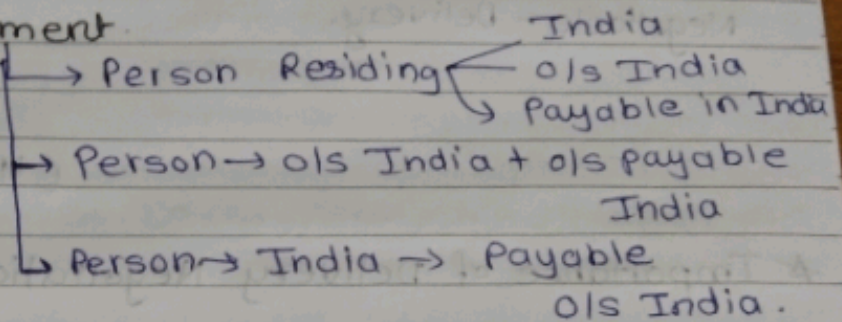 ment
India
→ Person Residing o/s India
→ Payable in India
→ Person → o/s India + o/s payable
India
→ Person → India → Payable
o/s India.